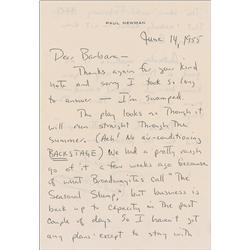 PAUL NEWMAN
June 14, 1955
Dear Barbara —
Thanks again for your kind
note and sorry I took so long
to answer — I'm swamped.
The play looks as though it
will run straight through the
summer. (Ach! No air-conditioning
BACKSTAGE) We had a pretty rough
go of it a few weeks ago because
of what Broadwayites call "The
Seasonal Slump", but business is
back up to capacity in the past
couple of days. So I haven't got
any plans except to stay with